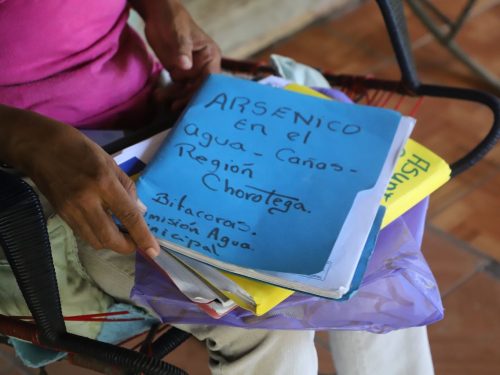 ARSENICO
en el
agua - Cañas -
Región
Chorotega.
Bitácoras.
misión Agua
nicipal
Asunt